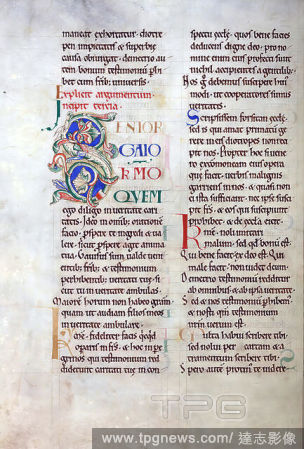 maneat exhortatur. diotre
pen impietatis & superbie
causa obiurgat. demetrio au
tem bonum testimonium phi
ber cum fribus uniuersis.
Explicit argumentum.
Incipit tercia.
SENIOR
GAIO
RMO
QVEM
ego diligo in ueritate cari
tatis. Ideo in omnib; orationē
facio. pspere te ingredi & ua
lere. sicut pspere agit anima
tua. Gauisus sum ualde ueni
entib; frib; & testimonium
phibentib; ueritati tue. sic
ut tu in ueritate ambulas.
Maiorē horum non habeo gratiā
quam ut audiam filios meos
in ueritate ambulare.
Kme. fideliter facis qcqd
opatis in frīs. & hoc in pe
grinos qui testimonium red
diderunt caritati tue in con
spectu eccle. quos bene faciens
deducens digne deo. pro no
mine enim eius profecti sunt
nichil accipientes a gentilib;.
Nos g debemus suscipere huius
modi. ut cooperatores simus
ueritatis.
Scripsissem forsitan eccle.
sed is qui amat primatū ge
rere in eis diotrepes non reci
pit nos. Propter hoc si uenero
cōmoneam eius opera
que facit. uerbis malignis
garriens in nos. & quasi non
ei ista sufficiant. nec ipse susci
pit frīs. & eos qui suscipiunt
prohibet. & de eccla eicit.
Kme. noli imitari
malum. sed qd bonū est.
Qui bene facit ex deo est. Qui
male facit. non uidit deum.
Demetrio testimonium redditur
ab omnibus & ab ipsa ueritate.
Sed & nos testimoniū phibem;
& nosti qm testimonium
nrm uerum est.
Multa habui scribere tibi.
sed nolui per cartam & a
tramentum scribere tibi.
Spero aute protin; te uidere.
TPG
www.tpgnews.com/ 達志影像